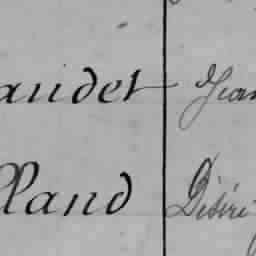 audet Jean
lland Désiré